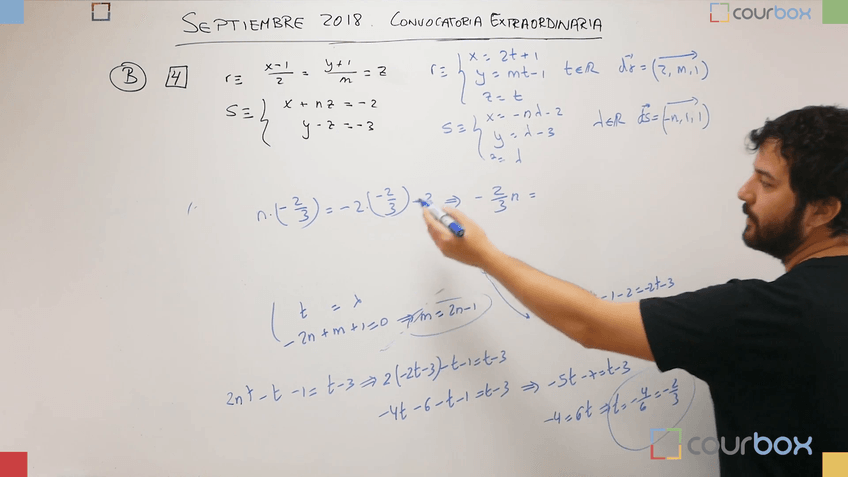 SEPTIEMBRE 2018. CONVOCATORIA EXTRAORDINARIA
courbox
B 4 r≡ x-1/2 = y+1/m = z
s≡ { x + nz = -2
y - z = -3
r≡ { x = 2t+1
y = mt-1 t∈ℝ dr = (2, m, 1)
z = t
s≡ { x = -nλ-2
y = λ-3 λ∈ℝ ds = (-n, 1, 1)
z = λ
n·(-2/3) = -2·(-2/3) -3 ⇒ -2/3 n =
-1-2=-2t-3
{ t = λ
-2n+m+1=0 ⇒ m=2n-1
2nt - t - 1 = t-3 ⇒ 2(-2t-3)-t-1=t-3
-4t-6-t-1=t-3 ⇒ -5t-7=t-3
-4=6t ⇒ t=-4/6=-2/3
courbox